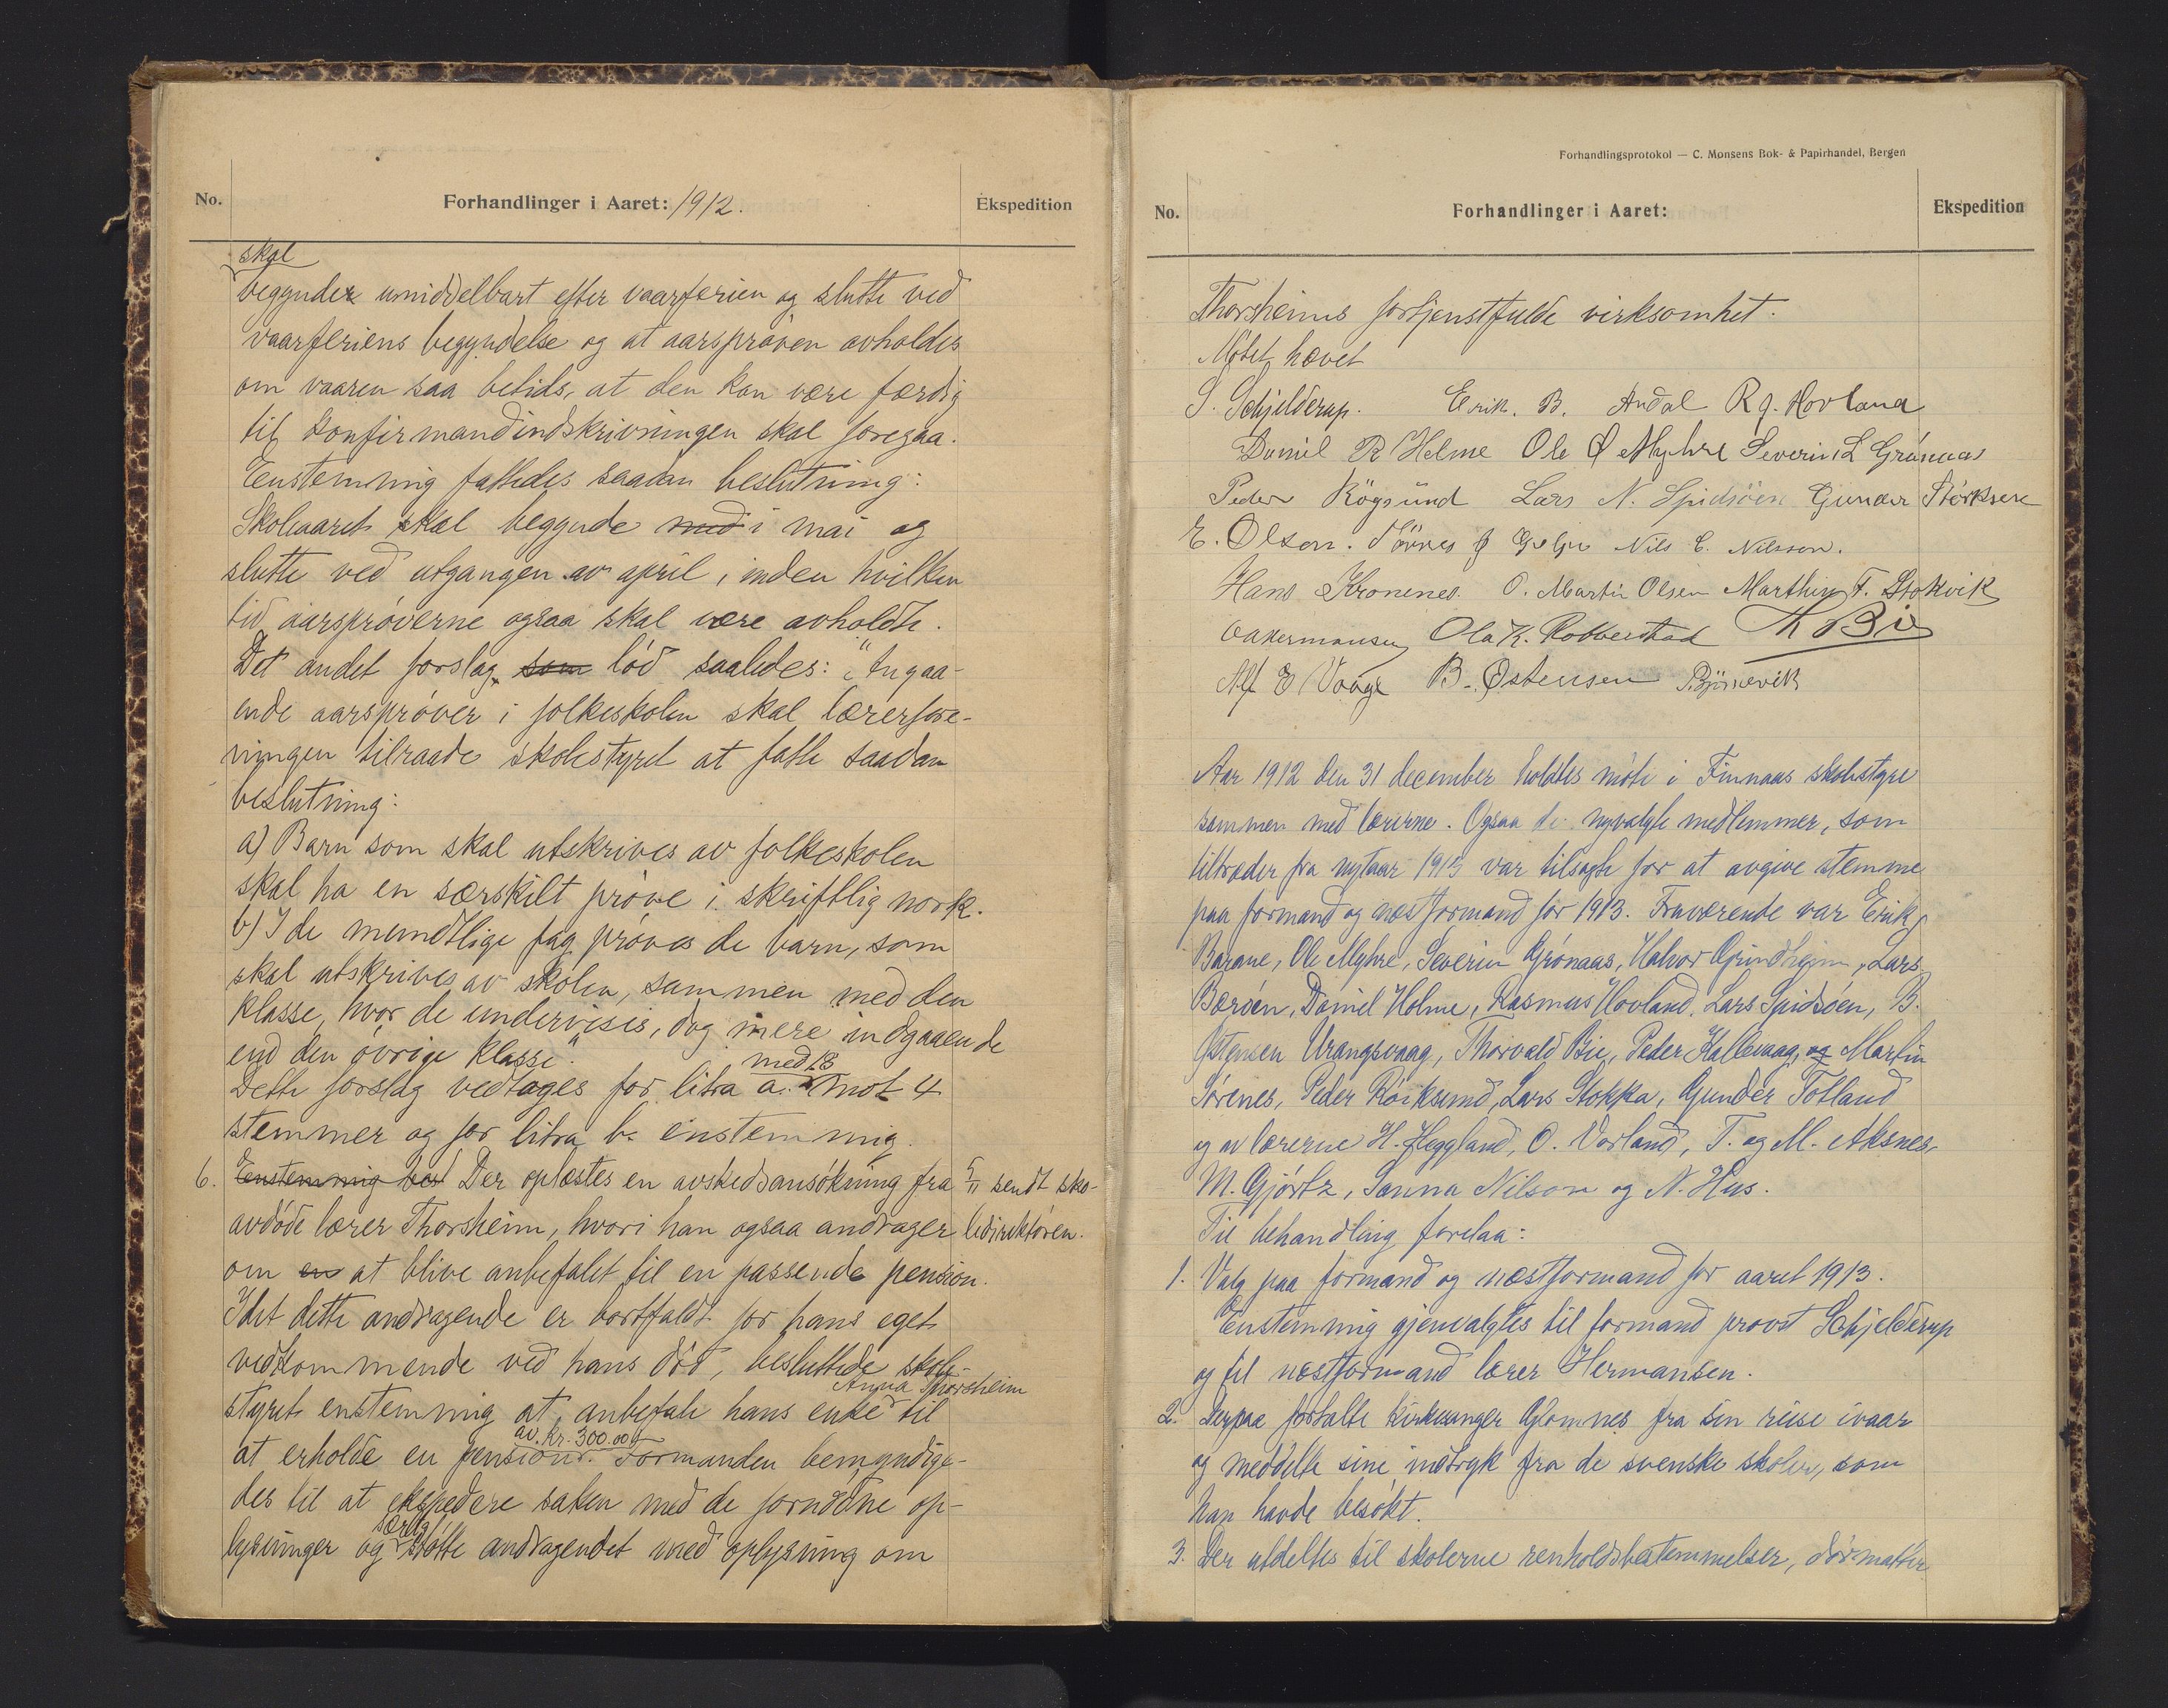 No.
Forhandlinger i Aaret: 1912.
Ekspedition
skal
begynder umiddelbart efter vaarferien og slutte ved
vaarferiens begyndelse og at aarsprøven avholdes
om vaaren saa betids, at den kan være færdig
til konfirmandindskrivningen skal foregaa.
Enstemmig fattedes saadan beslutning:
Skoleaaret skal begynde med i mai og
slutte ved utgangen av april, inden hvilken
tid aarsprøverne ogsaa skal være avholdte.
Det andet forslag som lød saaledes: "Angaa-
ende aarsprøver i folkeskolen skal lærerfore-
ningen tilraade skolestyret at fatte saadan
beslutning:
a) Barn som skal utskrives av folkeskolen
skal ha en særskilt prøve i skriftlig norsk.
b) I de mundtlige fag prøves de barn, som
skal utskrives av skolen, sammen med den
klasse, hvor de undervises, dog mere indgaaende
end den øvrige klasse."
med 13
Dette forslag vedtoges for litra a. mot 4
stemmer og for litra b. enstemmig.
6. Enstemmig bes Der oplæstes en avskedsansøkning fra 5/11 sendt sko-
avdøde lærer Thorsheim, hvori han ogsaa andrager ledirektøren.
om en at blive anbefalet til en passende pension.
Idet dette andragende er bortfaldt for hans eget
vedkommende ved hans død, besluttede skole-
Anna Thorsheim
styret enstemmig at anbefale hans enke til
av kr. 300.00
at erholde en pension. Formanden bemyndige-
des til at ekspedere saken med de fornødne op-
særlig
lysninger og støtte andragendet med oplysning om
Forhandlingsprotokol — C. Monsens Bok- & Papirhandel, Bergen
No.
Forhandlinger i Aaret:
Ekspedition
Thorsheims fortjenstfulde virksomhet.
Møtet hævet
S. Schjelderup. Erik. B. Andal R J. Hovland
Daniel R Helme Ole Ø Myhre Severin L Grønaas
Peder Rögsund Lars N. Spidsöen Gunder Störksen
E. Olsen. Nils C. Nilsson.
Hans Kronenes. O. Martin Olsen Marthin T. Stokvik
Ola K. Robberstad Th Bie
Alf E Vaage B. Østensen P. Bjørnevik
Aar 1912 den 31 december holdtes møte i Finnaas skolestyre
sammen med lærerne. Ogsaa de nyvalgte medlemmer, som
tiltræder fra nytaar 1913 var tilsagte for at avgive stemme
paa formand og næstformand for 1913. Fraværende var Erik
Barane, Ole Myhre, Severin Grønaas, Halvor Grindheim, Lars
Bærøen, Daniel Holme, Rasmus Hovland, Lars Spidsøen, B.
Østensen Urangsvaag, Thorvald Bie, Peder Kallevaag, og Martin
Sørenes, Peder Røiksund, Lars Stokka, Gunder Totland
og av lærerne H. Heggland, O. Vorland, T. og M. Aksnes,
M. Gjørtz, Sanna Nilson og N. Hus.
Til behandling forelaa:
1. Valg paa formand og næstformand for aaret 1913.
Enstemmig gjenvalgtes til formand provst Schjelderup
og til næstformand lærer Hermansen.
2. Derpaa fortalte kirkesanger Glomnes fra sin reise ivaar
og meddelte sine indtryk fra de svenske skoler, som
han havde besøkt.
3. Der utdeltes til skolerne renholdsbestemmelser, dørmatter